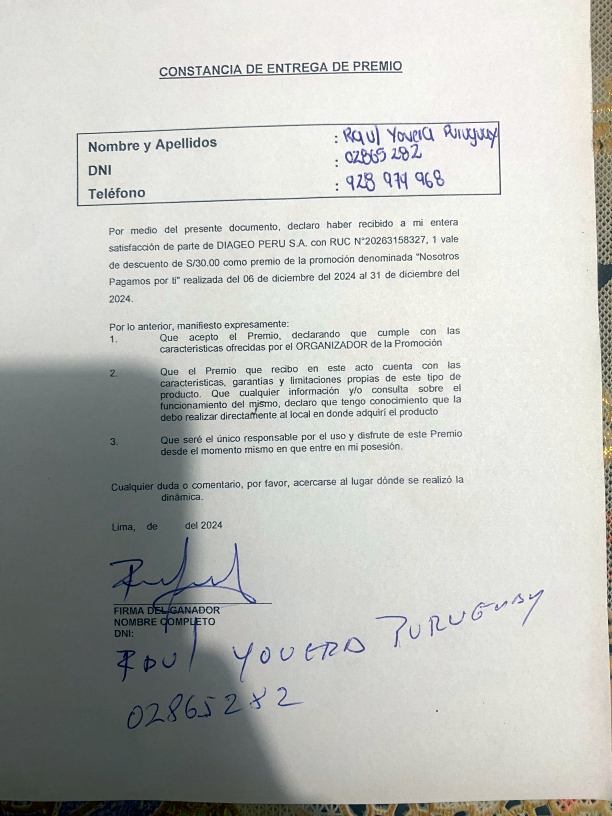 CONSTANCIA DE ENTREGA DE PREMIO
Nombre y Apellidos : Raul Yovera Puruguay
DNI : 02865282
Teléfono : 928 979 968
Por medio del presente documento, declaro haber recibido a mi entera
satisfacción de parte de DIAGEO PERU S.A. con RUC N°20263158327, 1 vale
de descuento de S/30.00 como premio de la promoción denominada "Nosotros
Pagamos por ti" realizada del 06 de diciembre del 2024 al 31 de diciembre del
2024.
Por lo anterior, manifiesto expresamente:
1. Que acepto el Premio, declarando que cumple con las
características ofrecidas por el ORGANIZADOR de la Promoción
2. Que el Premio que recibo en este acto cuenta con las
características, garantías y limitaciones propias de este tipo de
producto. Que cualquier información y/o consulta sobre el
funcionamiento del mismo, declaro que tengo conocimiento que la
debo realizar directamente al local en donde adquirí el producto
3. Que seré el único responsable por el uso y disfrute de este Premio
desde el momento mismo en que entre en mi posesión.
Cualquier duda o comentario, por favor, acercarse al lugar dónde se realizó la
dinámica.
Lima, de del 2024
FIRMA DEL GANADOR
NOMBRE COMPLETO
DNI:
RAUL YOVERA PURUGUAY
02865282